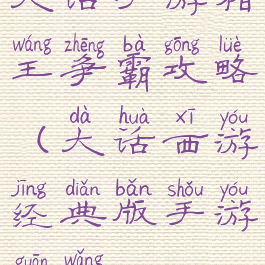 大话手游稍
wáng zhēng bà gōng lüè
王争霸攻略
dà huà xī yóu
(大话西游
jīng diǎn bǎn shǒu yóu
经典版手游
guān wǎng